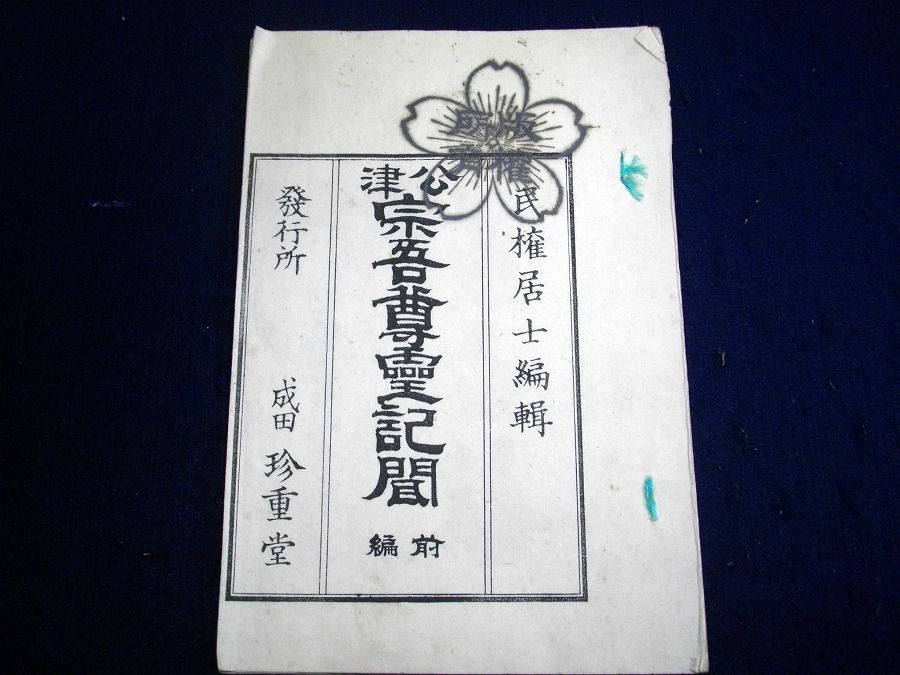 版權
所有
民権居士編輯
公津
宗吾尊靈記聞
前編
發行所
成田 珍重堂